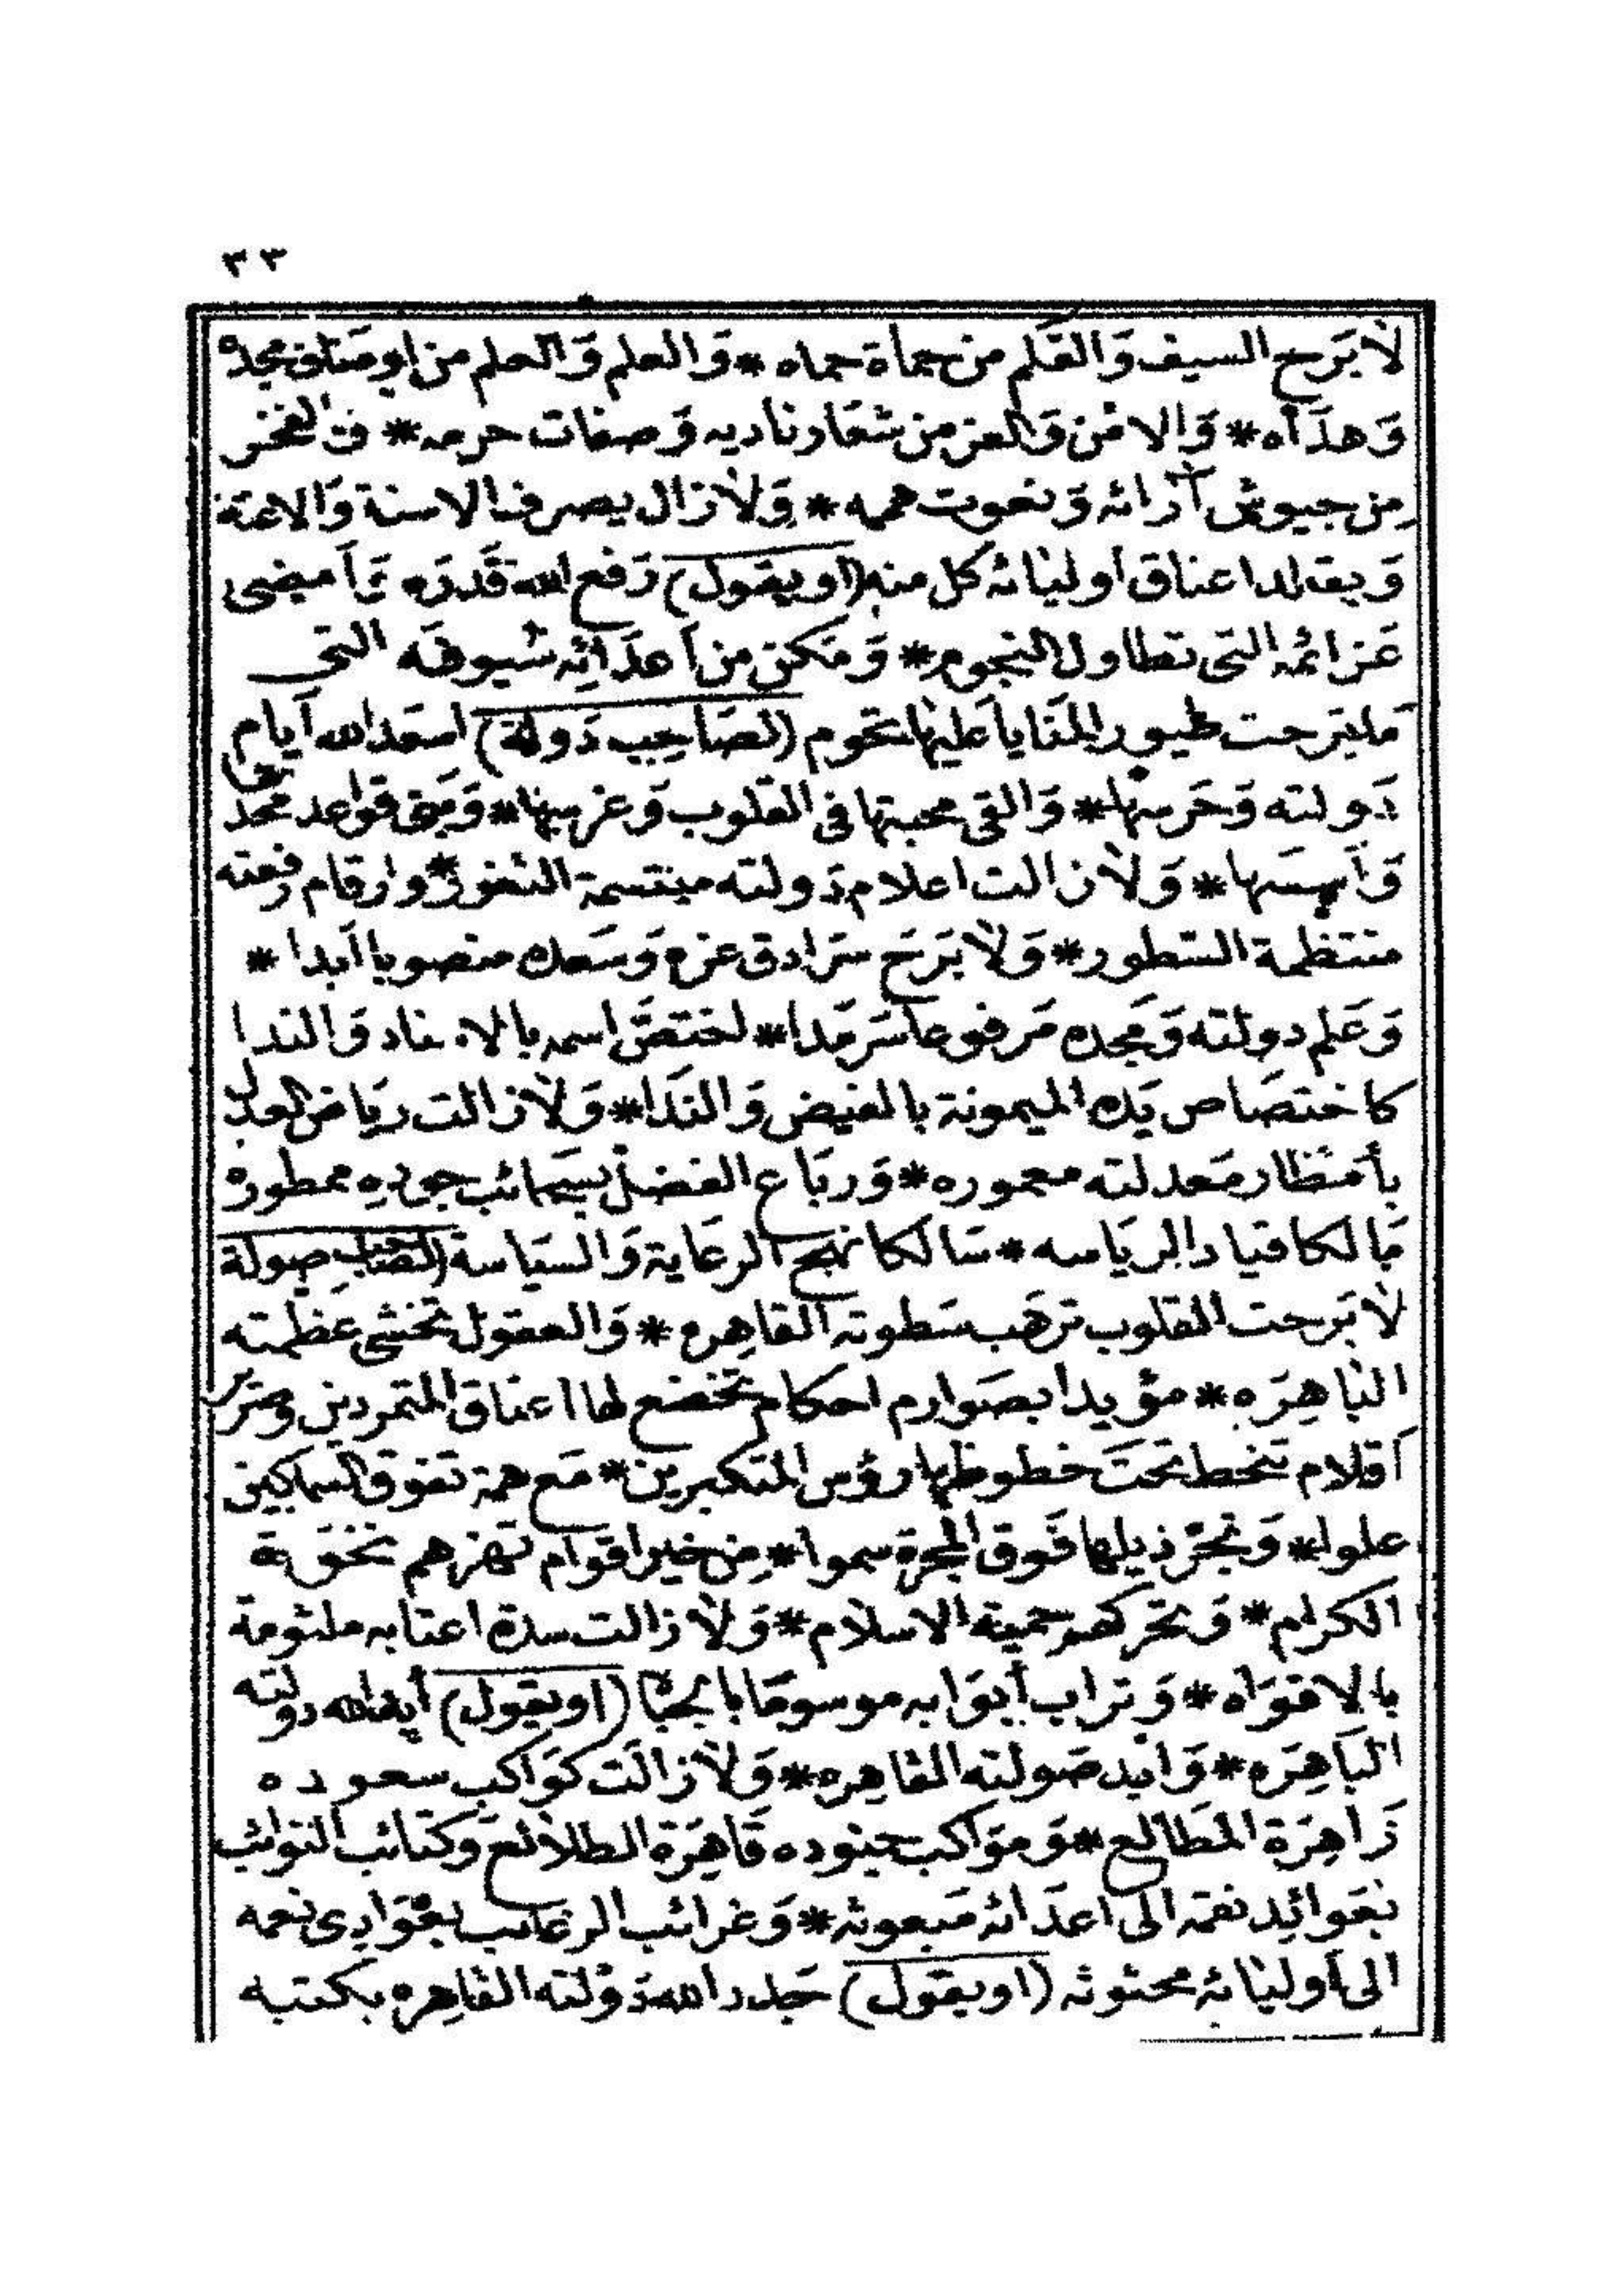 ٣٣
لَا بَرح السيف وَالقَلم من حماة حماه * وَالعلم وَالحلم من اوصاف مجده
وَهدَاه * وَالامن وَالعز من شعَار ناديه وَصفات حرمه * والفخر
مِن جيوش آرائه وَنعوت هممه * وَلَا زال يصرف الاسنة وَالاعنة
وَيقلد اعناق اوليائه كل منه (اويقول) رَفع الله قَدرَه وَأمضى
عَزائمه التى تطاول النجوم * وَمَكن من أعدَائِه سُيوفَه التى
مَا بَرحت طيور المَنَايا عَليهَا تحوم (لصَاحِب دَولة) اسعَد الله اَيام
دَولته وَحَرسهَا * وَالقى محبتها فى القلوب وَغرسهَا * وَبَنى قواعد مجد
وَأسسَها * وَلَا زالت اعلام دَولته مبتسمة الثغور * وارقام رفعته
منتظمة السّطور * وَلَا بَرَحَ سُرَادق عزه وَسَعده منصوبا اَبدا *
وَعَلم دولته وَمَجده مَرفوعا سَرمَدا * لختصَّ اسمه بالاسناد وَالندا
كاختصَاص يَده الميمونة بالفيض وَالنَدَا * وَلَا زالت ريَاض العدل
بأمطار مَعدلته معموره * وَربَاع الفضل بسحائب جوده ممطوره
مَالكا قياد الريَاسه * سَالكا نهج الرعَاية وَالسيَاسة (لصَاحب صولة
لَا بَرحت القلوب ترهَب سَطوته القاهِره * وَالعقول تخشى عظمته
البَاهِرَه * مؤيدا بصَوارم احكام تخضع لها اعناق المتمردين
أقلام تنحط تحتَ خطوطها رؤس المتكبرين * مَع همة تفوق السماكين
علوا * وَتجرّ ذيلها فَوق المجرة سموا * مِن خير اقوام تهزهم نخوَة
الكرام * وَتحركهم حمية الاسلام * وَلَا زالت سدة اعتابه ملثومة
بالافوَاه * وَتراب أبوَابه موسومَا بالجبَا (اويقول) أيد الله دولته
البَاهِرَه * وَايد صَولته القاهِره * وَلَا زالَت كوَاكب سعوده
زَاهِرَة المطَالع * وَموَاكب جنوده قَاهِرَة الطلَائع وكتائب النوائب
بعَوائِد نقمه الى اعدَائه مَبعوثه * وَغرائب الرغائب بغوَادِى نعمه
الى أوليائه محثوثه (اويقول) خَلد الله دَوْلته القاهِره بكتبه